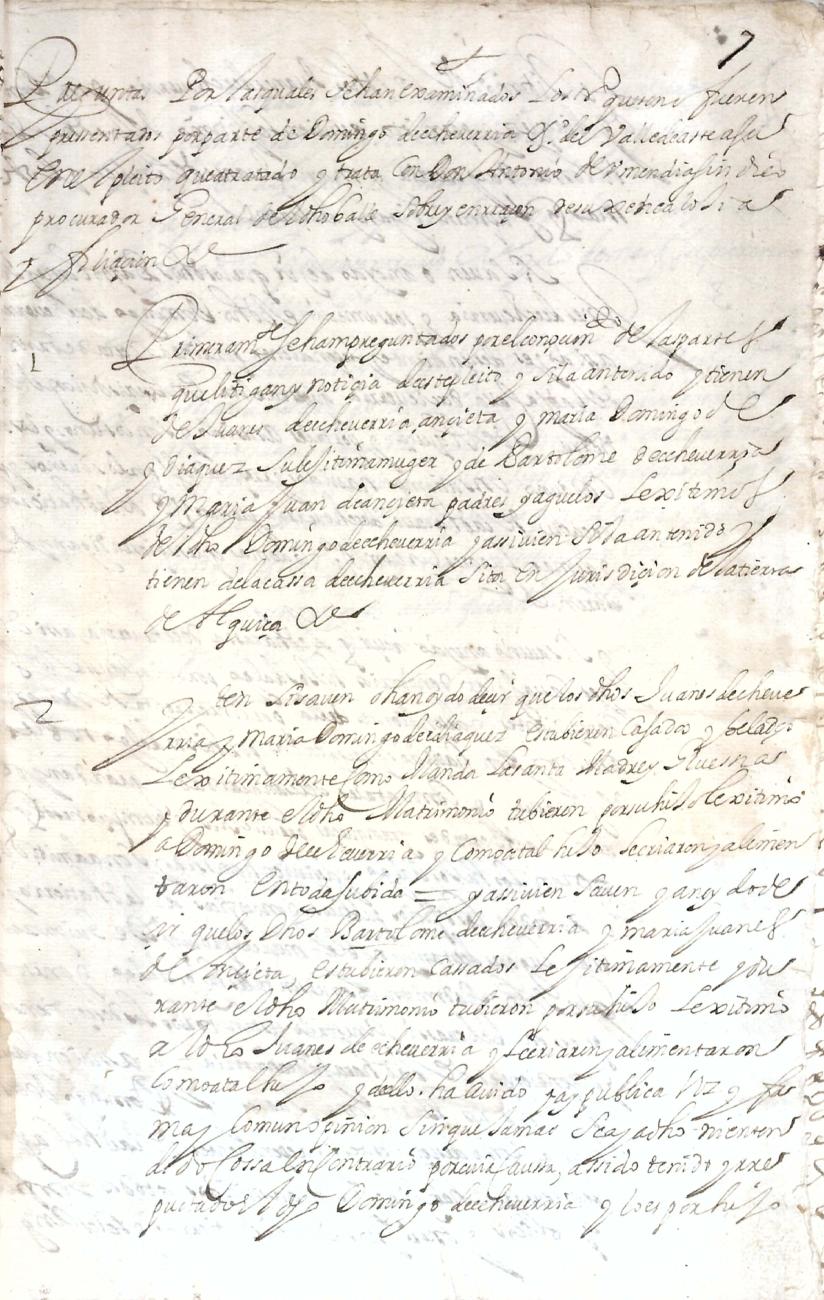 7
Preguntas Por las quales Sehan examinados Los tos que son o fueren
presentados por parte de Domingo de echeverria Vo. del Valle de
En el pleito que a tratado y trata Con Don Antonio de Vmendia sindico
procurador General del dho balle sobre y en raçon de su
y filiaçion &a
1 Primeramte. Sehan preguntados por el de las partes
que litigan y notiçia deeste pleito y si la an tenido y tienen
de Juanes de echeverria ançieta y maria Domingo de
ydiaquez Su lexitima muger y de Bartolome de echeverria
y Maria Juan de ançieta padres y aguelos Lexitimos
del dho Domingo de echeverria y assi vien Si la an tenido y
tienen de la cassa de echeverria Sita En Jurisdiçion de la tierra
de Alquiça &a
2 Yten Si saven o han oydo deçir que los dhos Juanes de echeve
rria y maria Domingo de ydiaquez estubieron Casados y belados
Lexitimamente como Manda La santa Madre Yglessia
y durante el dho Matrimonio tubieron por su hijo lexitimo
a Domingo de echeverria y Como a tal hijo le criaron y alimen
taron En toda su vida = y assi vien saven y an oydo de
çir que los Dhos Bartolome de echeverria y maria Juanes
de Ançieta, estubieron Cassados Lexitimamente y du
rante el dho Matrimonio tubieron por su hijo Lexitimo
a l dho Juanes de echeverria y le criaron y alimentaron
Como a tal hijo y de ello ha avido y ay publica voz y fa
ma y Comun opinion Sin que Jamas Se aya dho ni enten
dido Cossa En Contrario por cuia Caussa, a sido tenido y rre
putado el dho Domingo de echeverria y lo es por hijo